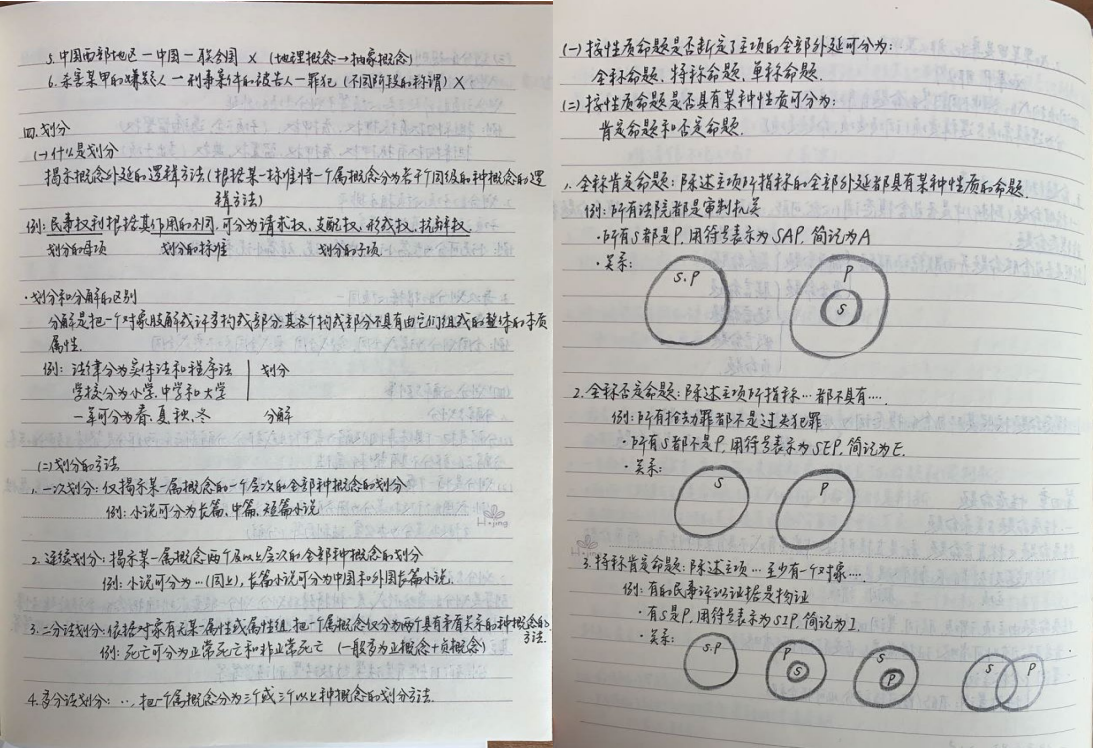 5. 中国西部地区 — 中国 — 联合国 × (地理概念→抽象概念)
6. 杀害某甲的嫌疑人 — 刑事案件的被告人 — 罪犯 (不同阶段的称谓) ×
四. 划分
(一) 什么是划分
揭示概念外延的逻辑方法 (根据某一标准将一个属概念分为若干个同级的种概念的逻
辑方法)
例: 民事权利根据其作用的不同, 可分为请求权、支配权、形成权、抗辩权.
划分的母项 划分的标准 划分的子项
·划分和分解的区别
分解是把一个对象肢解成许多构成部分, 其各个构成部分不具有由它们组成的整体的本质
属性.
例: 法律分为实体法和程序法 划分
学校分为小学、中学和大学
一年可分为春、夏、秋、冬 分解
(二) 划分的方法
1. 一次划分: 仅揭示某一属概念的一个层次的全部种概念的划分
例: 小说可分为长篇、中篇、短篇小说
2. 连续划分: 揭示某一属概念两个及以上层次的全部种概念的划分
例: 小说可分为…(同上), 长篇小说可分为中国和外国长篇小说.
3. 二分法划分: 依据对象有无某一属性或属性组, 把一个属概念仅分为两个具有矛盾关系的种概念的
方法.
例: 死亡可分为正常死亡和非正常死亡 (一般多为正概念+负概念)
4. 多分法划分: …, 把一个属概念分为三个或三个以上种概念的划分方法.
(一) 按性质命题是否断定了主项的全部外延可分为:
全称命题、特称命题、单称命题.
(二) 按性质命题是否具有某种性质可分为:
肯定命题和否定命题.
1. 全称肯定命题: 陈述主项所指称的全部外延都具有某种性质的命题.
例: 所有法院都是审判机关
·所有S都是P, 用符号表示为SAP, 简记为A
·关系:
S·P P
S
2. 全称否定命题: 陈述主项所指称…都不具有….
例: 所有抢劫罪都不是过失犯罪
·所有S都不是P, 用符号表示为SEP, 简记为E.
·关系:
S P
3. 特称肯定命题: 陈述主项…至少有一个对象….
例: 有的民事诉讼证据是物证
·有S是P, 用符号表示为SIP, 简记为I.
·关系:
S·P P S S P
S P